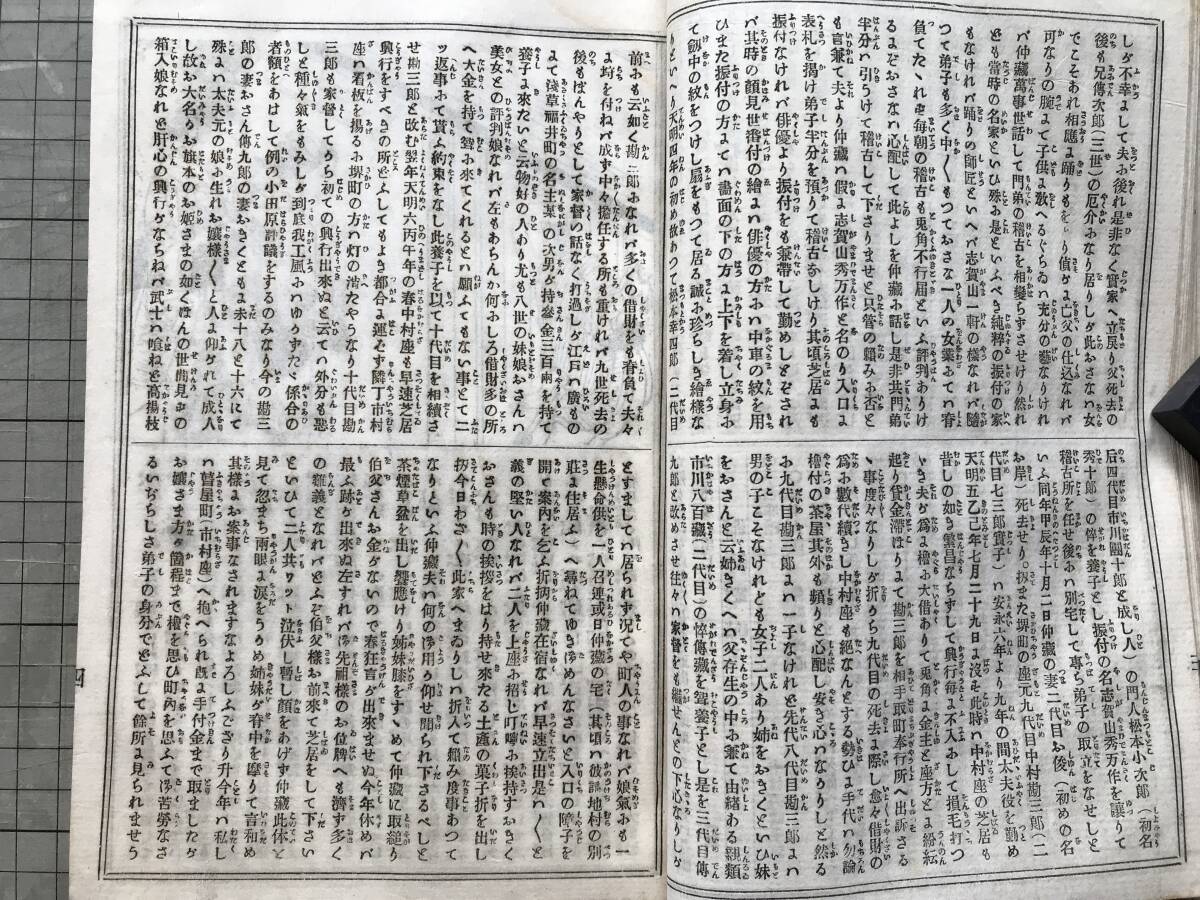 しが不幸にして夫に後れ是非なく實家へ立戻り父死去の
後も兄傳次郎(三世)の厄介になり居りしが此おさなハ女
でこそあれ相應に踊りもを
可なりの腕にて子供に敎へるぐらゐハ充分の藝なりけれ
バ仲藏萬事世話して門弟の稽古を相變らずさせけり然れ
ども當時の名家といひ殊に是といふべき純粹の振付の家
もなけれバ踊りの師匠といへバ志賀山一軒の樣なれバ隨
つて弟子も多く中〱もつておさな一人の女業にてハ脊
負てたゝれず毎朝の稽古も兎角不行屆といふ評判ありけ
るにぞおさなハ心配して此よしを仲藏に話し是非共門弟
半分ハ引うけて稽古して下さりませと只管の賴みに否と
も言兼て夫より仲藏ハ假に志賀山秀万作と名のり入口に
表札を揭げ弟子半分を預りて稽古をしけり其頃芝居にも
振付なけれバ俳優より振付をも兼帶して勤めしとぞされ
バ其時の顏見世番付の繪にハ俳優の方にハ中車の紋を用
ひまた振付の方にハ畵面の下の方に上下を着し立身に
て劔中の紋をつけし扇をもつて居る誠に珍らしき繪樣な
りといへり天明四年の初め故あつて松本幸四郎(二代目
后四代目市川團十郎と成し人)の門人松本小次郎(初名
秀十郎)の悴を養子とし振付の名志賀山秀万作を讓りて
稽古所を任せ後にハ別宅して專ら弟子の取立をなせしと
いふ同年甲辰年十月二日仲藏の妻二代目お俊(初めの名
お岸)死去せり。扨また堺町の座元九代目中村勘三郎(二
代目七三郎實子)ハ安永六年より九年の間太夫役を勤め
天明五乙巳年七月二十九日に沒せ此時ハ中村座の芝居も
昔しの如き繁昌ならずして興行每に不入にして損毛打つ
ゞき夫が爲に櫓に大借ありて兎角に金主と座方とに紛紜
起り貸金滯はりにて勘三郎を相手取町奉行所へ出訴さる
ゝ事度々なりしが折から九代目の死去に際し愈々借財の
爲に數代續きし中村座も絶なんとする勢ひに手代ハ勿論
櫓付の茶屋其外も頻りと心配し安き心ハなかりしと然る
に九代目勘三郎に一子なけれど先代八代目勘三郎にハ
男の子こそなけれども女子二人あり姉をおきくといひ妹
をおさんと云姉きくへハ父存生の中に兼て由緒ある親類
市川八百藏(二代目)の悴傳藏を聟養子とし是を三代目傳
九郎と改めさせ往々ハ家督をも繼せんとの下心なりしが
前にも云如く勘三郎になれバ多くの借財をも脊負て夫々
に埓を付ねバ成ず中々擔任する所も重けれバ九世死去の
後もばんやりとして家督の話なく打過しが江戸ハ廣もの
にて淺草福井町の名主某の次男が持參金三百兩を持て
養子に來たいと云物好の人あり尤も八世の妹娘おさんハ
美女との評判娘なれバ左もあらんか何にしろ借財多の所
へ大金を持て聟に來てくれるとハ願ふてもない事とて二
ツ返事にて貰ふ約束をなし此養子を以て十代目を相續さ
せ勘三郎と改む翌年天明六丙午年の春中村座も早速芝居
興行をすべきの所どふしてもよき都合に運ばず隣丁市村
座ハ看板を揚るに堺町の方ハ灯の消たやうなり十代目勘
三郎も家督してから初ての興行出來ぬと云てハ外分も惡
しと種々氣をもみしが到底我工風にハゆかずたゞ係合の
者額をあはして例の小田原評議をするのみなり今の勘三
郎の妻おさん傳九郎の妻おきくともに未十八と十六にて
殊には太夫元の娘に生れお孃樣〱と人に仰がれて成人
し故に大名かお旗本のお姬さまの如くほんの世間見ずの
箱入娘なれど肝心の興行がならねバ武士ハ喰ねど高揚枝
とすましてハ居られず況てや町人の事なれバ娘氣にも一
生懸命供を一人召連或日仲藏の宅(其頃ハ彼謡地村の別
莊に住居ふ)へ尋ねてゆき御めんなさいと入口の障子を
開て案内を乞ふ折柄仲藏在宿なれバ早速立出是ハ〱と
義の堅い人なれバ二人を上座に招じ叮嚀に挨拶すおきく
おさんも時の挨拶をはり持せ來たる土產の菓子折を出し
扨今日わざ〱此家へまゐりしハ折入て賴み度事あつて
なりといふ仲藏夫ハ何の御用か仰せ聞られ下さるべしと
茶煙草盆を出し饗應けり姊妹膝をすゝめて仲藏に取縋り
伯父さんお金がないので春狂言が出來ませぬ今年休めバ
最ふ跡が出來ぬ左すれバ御先祖樣のお位牌へも濟ず多く
の難義となれバどふぞ伯父樣お前來て芝居をして下さい
といひて二人共ワット泣伏し暫し顏をあげず仲藏此体を
見て忽まち兩眼に淚をうかめ姉妹が脊中を摩りて言和め
其樣にお案事なされますなよろしふござり升今年ハ私し
ハ葺屋町(市村座)へ抱へられ既に手付金まで取ましたが
お孃さま方が箇程まで櫓を思ひ町內を思ふて御苦勞なさ
るいぢらしさ弟子の身分でどふして餘所に見られませう
四